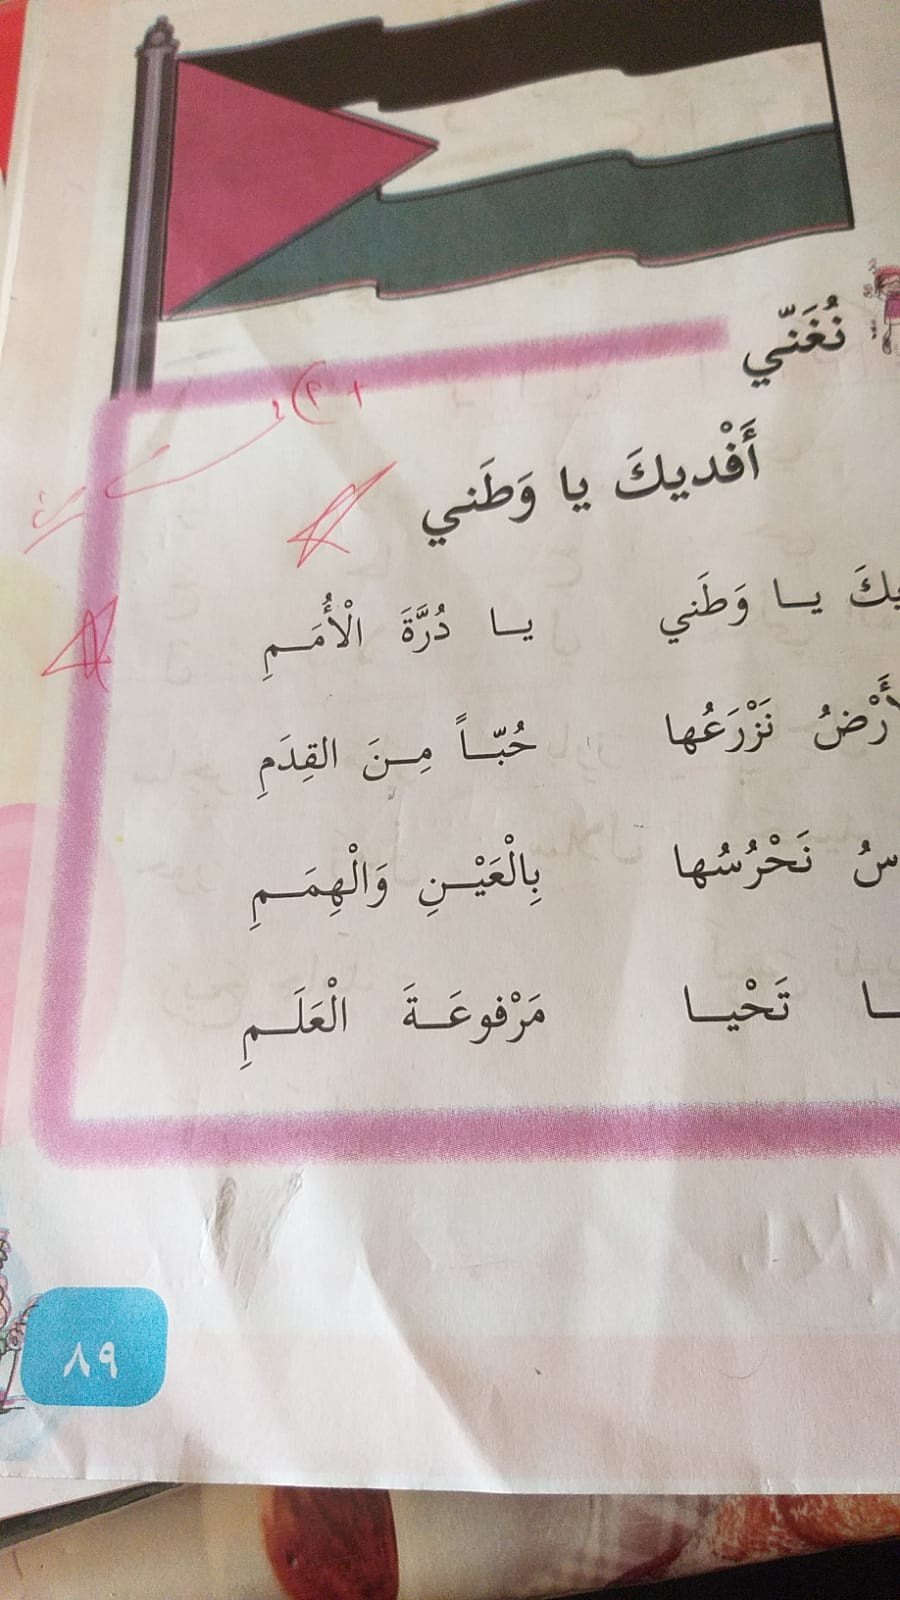 نُغَنّي
أَفْديكَ يا وَطَني
يــا وَطَني يــا دُرَّةَ الْأُمَــمِ
نَزْرَعُها حُبّــاً مِــنَ القِدَمِ
نَحْرُسُها بِالْعَيْــنِ وَالْهِمَــمِ
تَحْيــا مَرْفوعَــةَ الْعَلَــمِ
٨٩